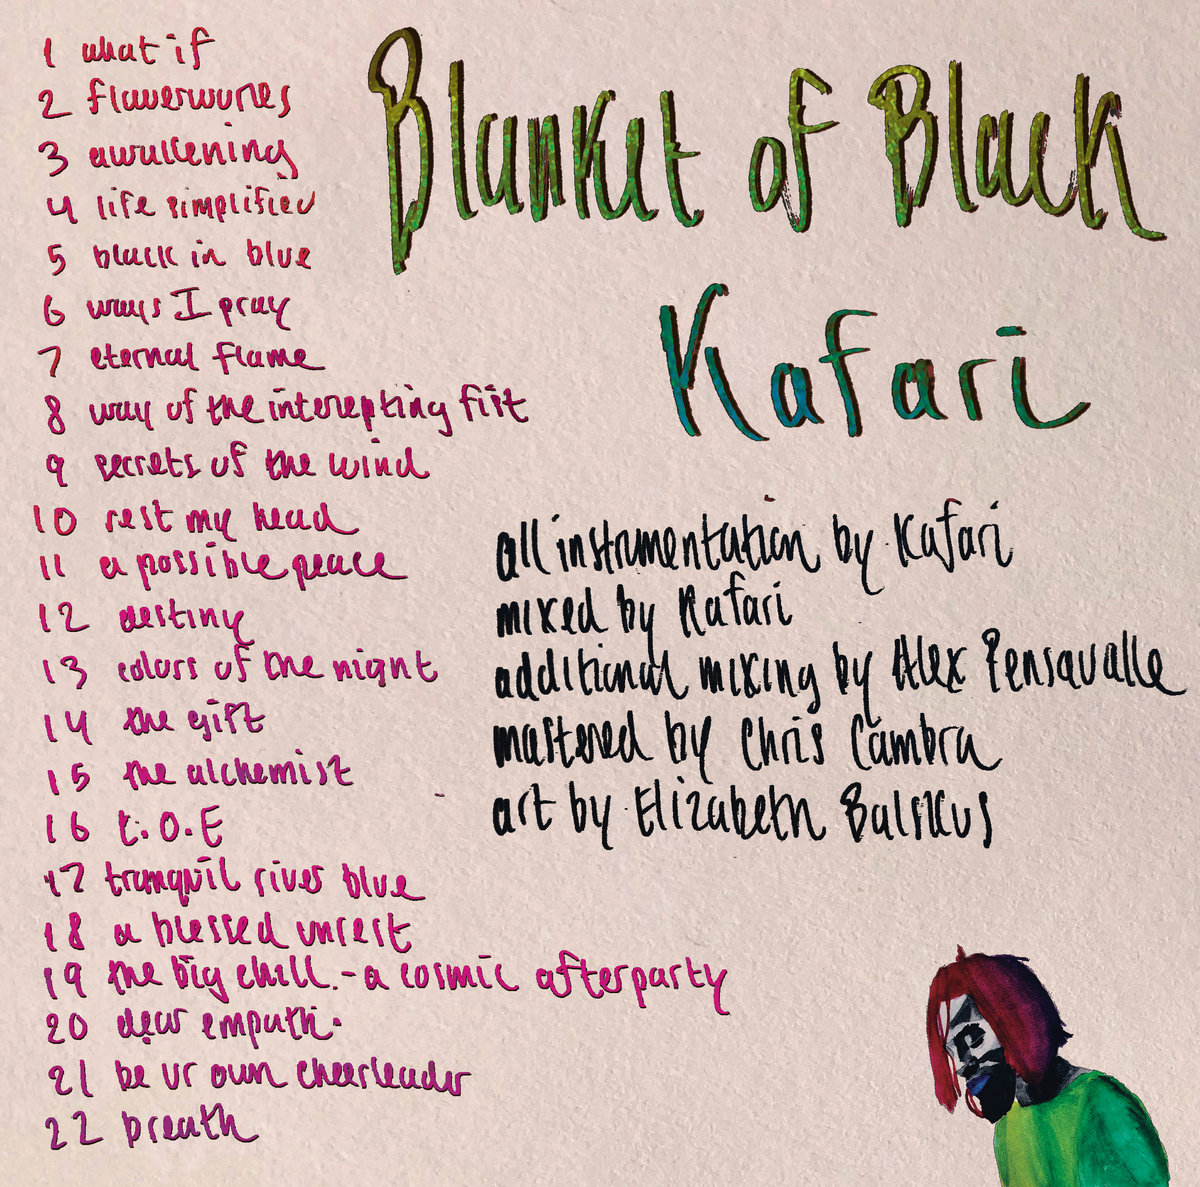 1 what if
2 flowerwores
3 awakening
4 life simplified
5 black in blue
6 ways I pray
7 eternal flame
8 way of the interepting fist
9 secrets of the wind
10 rest my head
11 a possible peace
12 destiny
13 colors of the night
14 the gift
15 the alchemist
16 t.O.E
17 tranquil river blue
18 a blessed unrest
19 the big chill - a cosmic afterparty
20 dear empath.
21 be ur own cheerleader
22 breath
Blanket of Black
Kafari
all instrumentation by Kafari
mixed by Kafari
additional mixing by Alex Pensavalle
mastered by Chris Cambra
art by Elizabeth Balskus